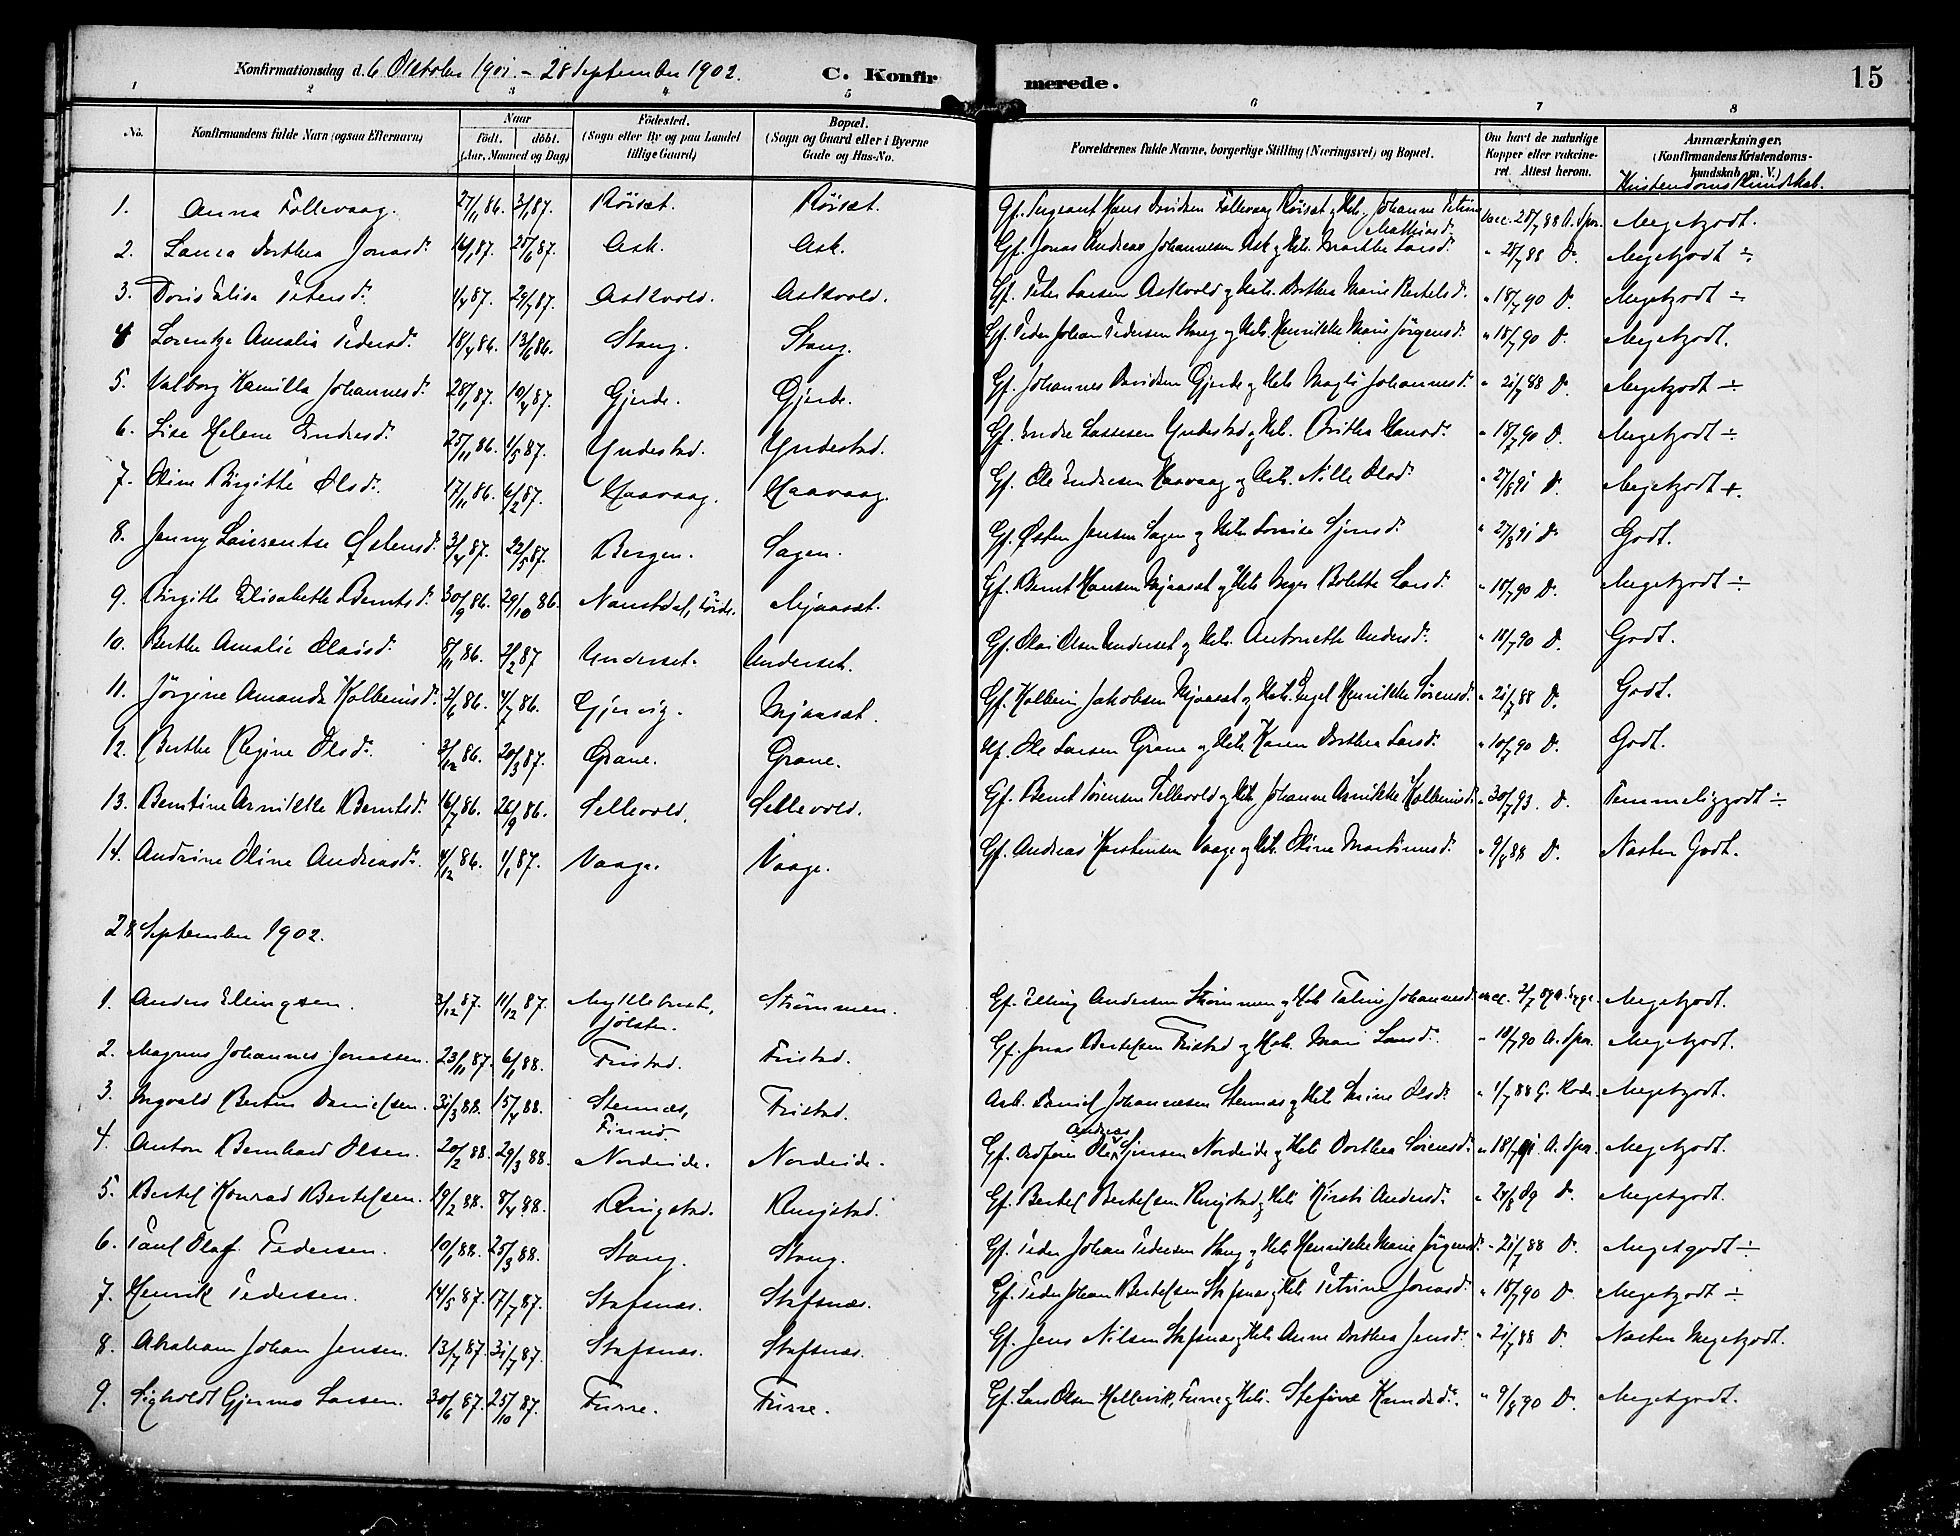 Konfirmationsdag d. 6 Oktober 1901. - 28 September 1902. C. Konfirmerede. 15
1 2 3 4 5 6 7 8
No. Konfirmandens fulde Navn (ogsaa Efternavn) Naar födt. döbt. (Aar, Maaned og Dag) Födested. (Sogn eller By og paa Landet tillige Gaard) Bopæl. (Sogn og Gaard eller i Byerne Gade og Hus-No. Forældrenes fulde Navne, borgerlige Stilling (Næringsvei) og Bopæl. Om havt de naturlige Kopper eller vakcineret. Attest herom. Anmærkninger. (Konfirmandens Kristendomskundskab m. V.)
Kristendomskundskab.
1. Anna Follevaag. 27/11 86. 3/1 87. Röiset. Röiset. Gf. Sergeant Hans Davidsen Follevaag Röiset og H. Johanne Petrine Mathiasd. vacc. 28/7 88 A. Spor. Megetgodt.
2. Laura Dorthea Jonasd. 16/1 87. 25/6 87. Ask. Ask. Gf. Jonas Andreas Johannesen Ask og H. Marthe Larsd. " 21/7 88 D. Megetgodt ÷
3. Doris Elisa Petersd. 1/4 87. 29/7 87. Askvold. Askvold. Gf. Peter Larsen Askvold og H. Dorthea Marie Bertelsd. " 18/7 90 D. Megetgodt ÷
4 Lorentze Amalia Pedersd. 18/4 86. 13/6 86. Stang. Stang. Gf. Peder Johan Pedersen Stang og H. Henrikke Marie Jörgensd. " 18/7 90 D. Megetgodt.
5. Valborg Kamilla Johannesd. 28/1 87. 10/4 87. Gjerde. Gjerde. Gf. Johannes Davidsen Gjerde og H. Magli Johannesd. " 21/7 88 D. Megetgodt ÷
6. Lise Helene Endresd. 25/11 86. 1/5 87. Yndestad. Yndestad. Gf. Endre Lassesen Yndestad og H. Brithe Hansd. " 18/7 90 D. Megetgodt ÷
7. Oline Birgitte Olsd. 17/11 86. 6/2 87. Haavaag. Haavaag. Gf. Ole Endresen Haavaag og H. Nille Olsd. " 27/8 91 D. Megetgodt +.
8. Jenny Laurentse Östensd. 3/4 87. 22/5 87. Bergen. Sagen. Gf. Östen Jensen Sagen og H. Lovise Sjursd. " 27/8 91 D. Godt.
9. Birgitte Elisabeth Berntsd. 30/9 86. 29/10 86. Naustdal, Förde. Mjaaset. Gf. Bernt Hansen Mjaaset og H. Bolette Larsd. " 18/7 90 D. Megetgodt ÷
10. Berthe Amalie Olaisd. 8/11 86. 2/2 87 Underset. Underset. Gf. Olai Olsen Underset og H. Antonette Andersd. " 18/7 90 D. Godt.
11. Jörgine Amanda Kolbeinsd. 2/6 86. 4/7 86. Gjervig. Mjaaset. Gf. Kolbein Jakobsen Mjaaset og H. Engel Henrikke Sörensd. " 21/7 88 D. Godt.
12. Berthe Regine Olsd. 3/12 86. 20/3 87. Grane. Grane. Gf. Ole Larsen Grane og H. Karen Dorthea Larsd. " 10/7 90 D. Godt.
13. Berntine Arnikke Berntsd. 16/7 86. 26/9 86. Sellevold. Sellevold. Gf. Bernt Sörensen Sellevold og H. Johanne Arnikke Kolbeinsd. " 30/7 93. D. Temmeliggodt ÷
14. Andrine Oline Andreasd. 4/12 86. 1/1 87. Vaage. Vaage. Gf. Andreas Karstensen Vaage og H. Oline Martinusd. " 9/8 88 D. Næsten Godt.
28 September 1902.
1. Anders Ellingsen. 3/12 87. 11/12 87. Myklebust, Jölster. Strömmen. Gf. Elling Andersen Strömmen og H. Taline Johannesd. vacc. 2/7 89 Megetgodt.
2. Magnus Johannes Jonassen. 23/11 87. 6/1 88. Fristad. Fristad. Gf. Jonas Bertelsen Fristad og H. Mari Larsd. " 18/7 90 A. Spor. Megetgodt.
3. Ingvald Bertin Danielsen. 31/3 88. 15/4 88. Stennæs, Fristad. Arb. Daniel Johannesen Stennæs og H. Serine Olsd. " 1/7 88 Megetgodt.
4. Anton Bernhard Olsen. 20/2 88. 29/3 88. Nordeide. Nordeide. Gf. Ole Andreas Sjursen Nordeide og H. Dorthea Sörensd. " 18/7 91 A. Spor. Megetgodt.
5. Bertel Konrad Bertelsen. 19/2 88. 8/4 88. Ringstad. Ringstad. Gf. Bertel Bertelsen Ringstad og H. Kirsti Andersd. " 24/8 89 D. Megetgodt.
6. Paul Olaf Pedersen. 10/1 88. 25/3 88. Stang. Stang. Gf. Peder Johan Pedersen Stang og H. Henrikke Marie Jörgensd. " 21/7 88 D. Megetgodt ÷
7. Henrik Pedersen. 14/5 87. 17/7 87. Stafsnæs. Stafsnæs. Gf. Peder Johan Bertelsen Stafsnæs og H. Petrine Jonasd. " 18/7 90 D. Megetgodt ÷
8. Abraham Johan Jensen. 13/7 87 31/7 87. Stafsnæs. Stafsnæs. Gf. Jens Nilsen Stafsnæs og H. Anne Dorthea Jensd. " 21/7 88 D. Næsten Megetgodt.
9. Sigvald Gjermo Larsen. 30/6 87. 25/10 87. Furre. Furre. Gf. Lars Olsen Hellevik, Furre og H. Stefine Knudsd. " 9/8 90 D. Megetgodt.